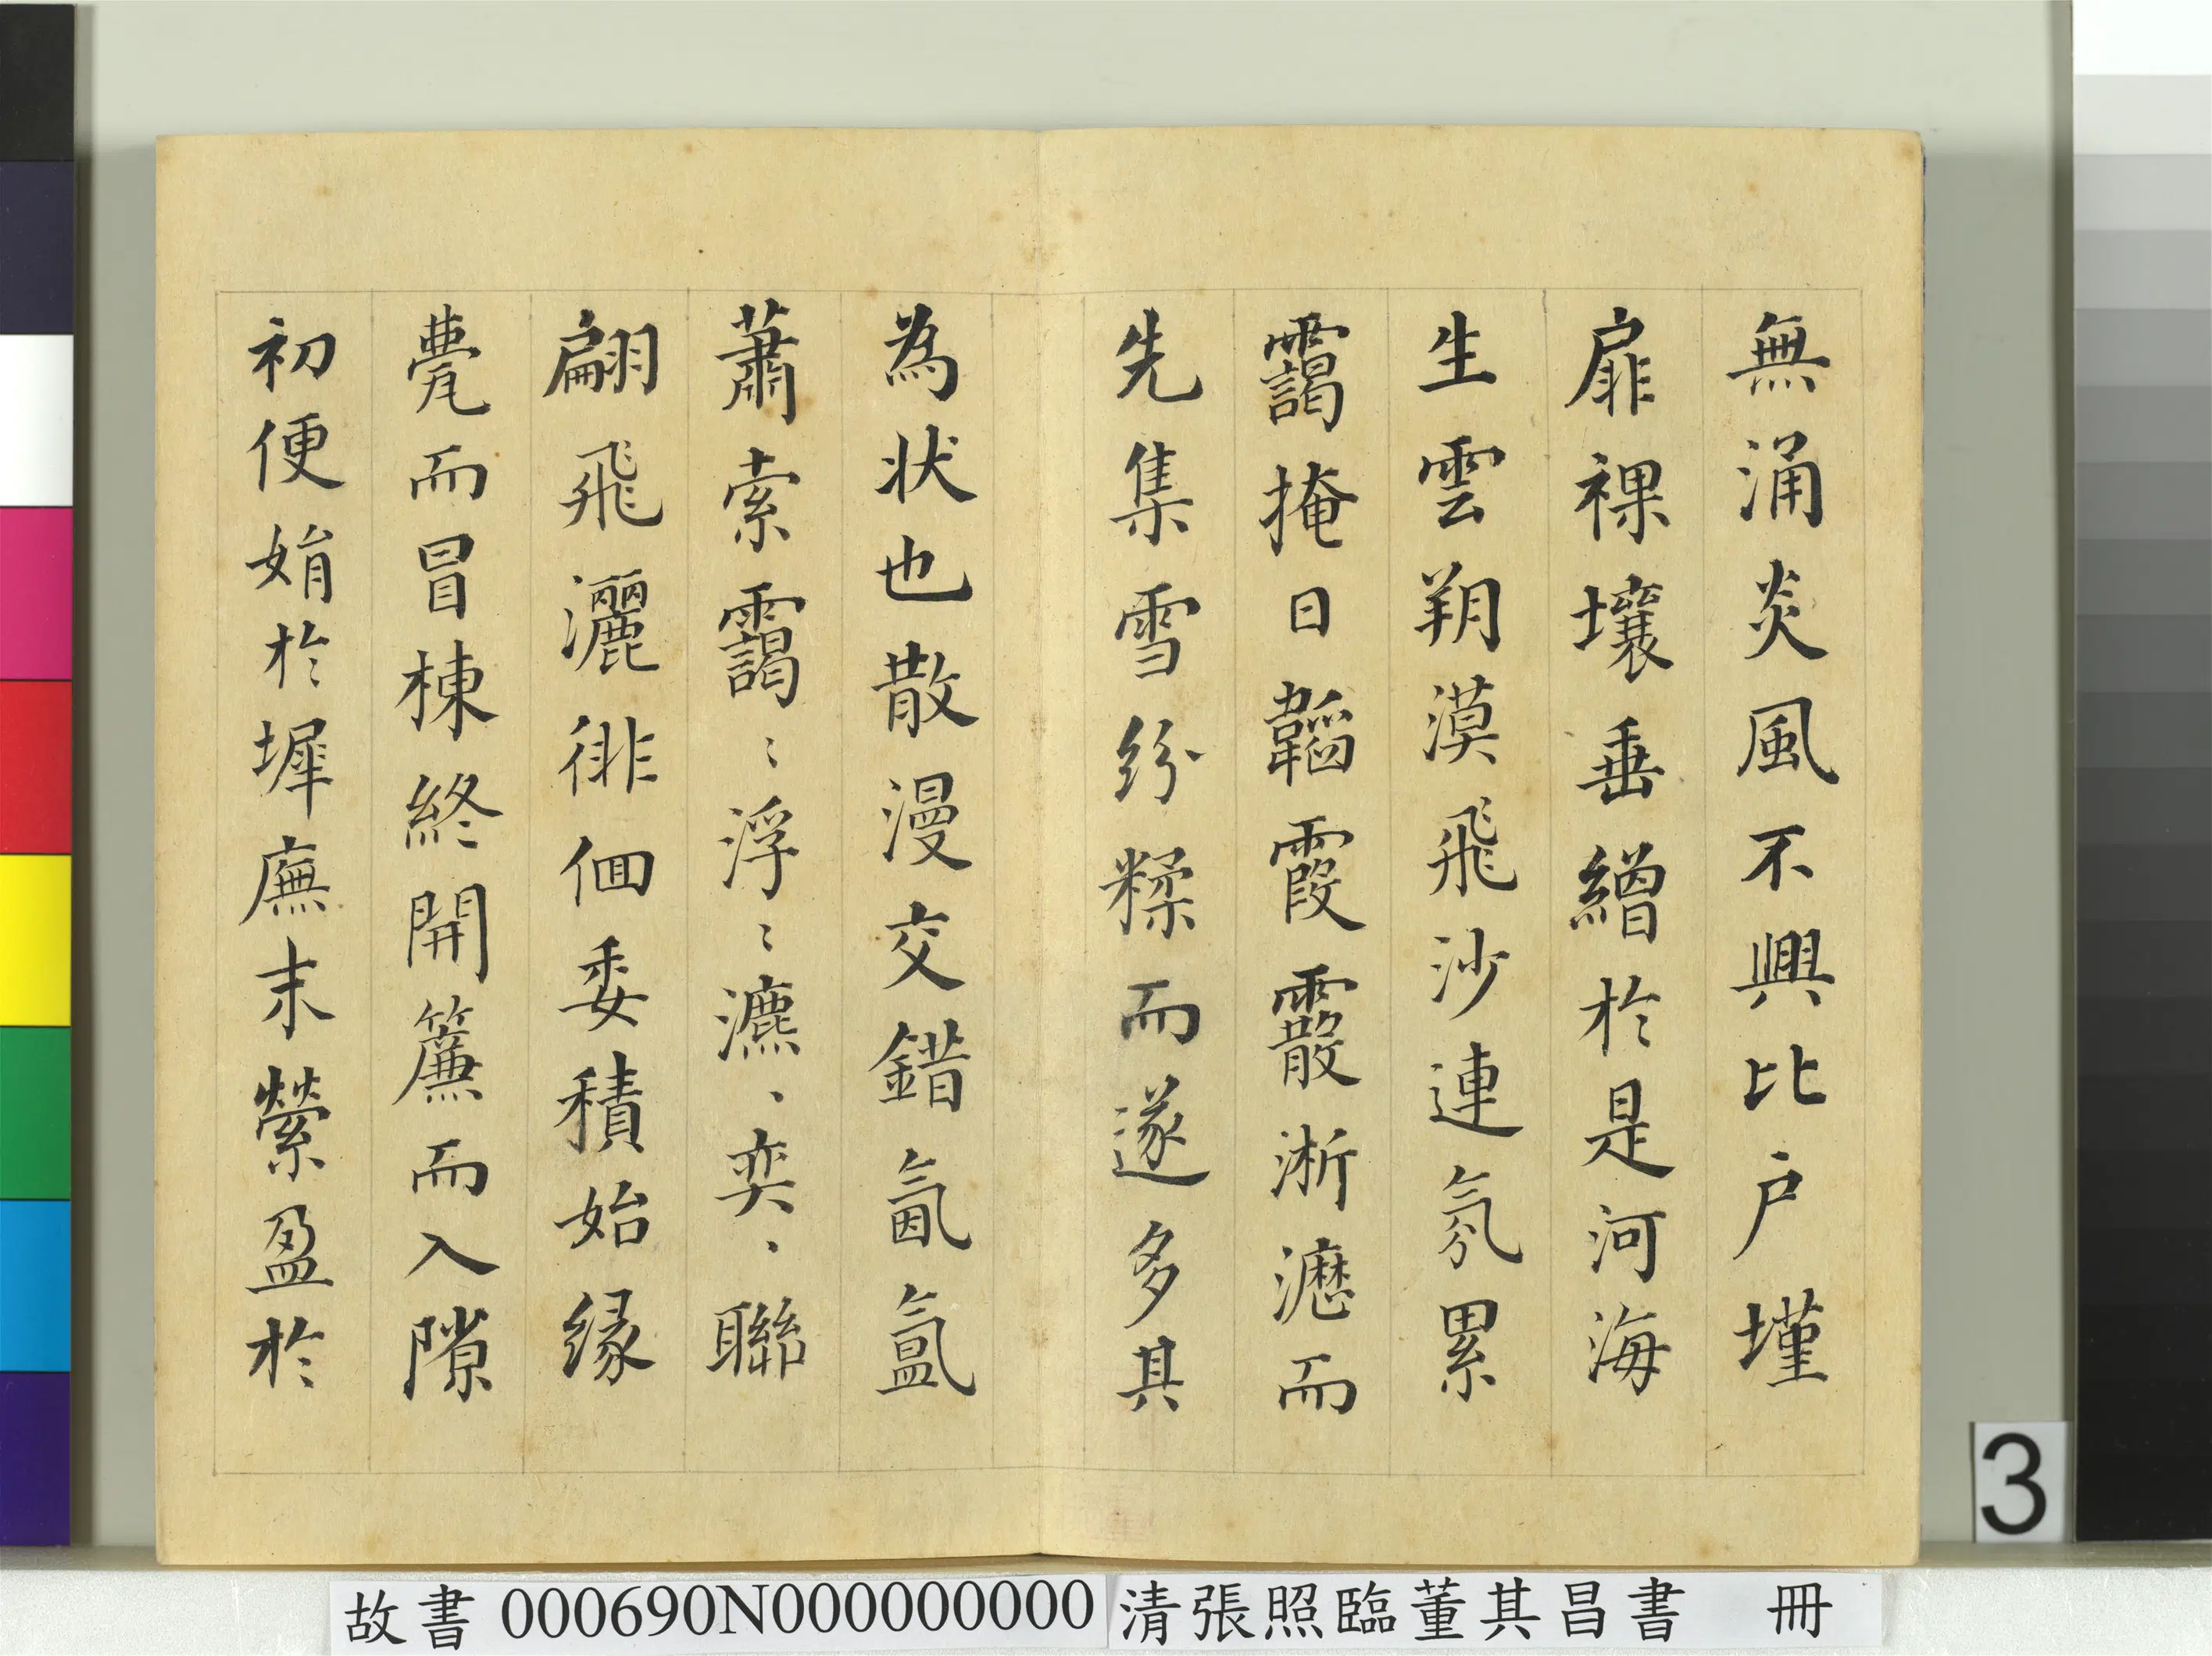 無涌炎風不興比戶墐
扉裸壤垂繒於是河海
生雲朔漠飛沙連氛累
靄掩日韜霞霰淅瀝而
先集雪紛糅而遂多其
為狀也散漫交錯氤氳
蕭索靄〻浮〻瀌、奕、聯
翩飛灑徘徊委積始緣
甍而冒棟終開簾而入隙
初便娟於墀廡末縈盈於
3
故書 000690N000000000 清張照臨董其昌書 冊